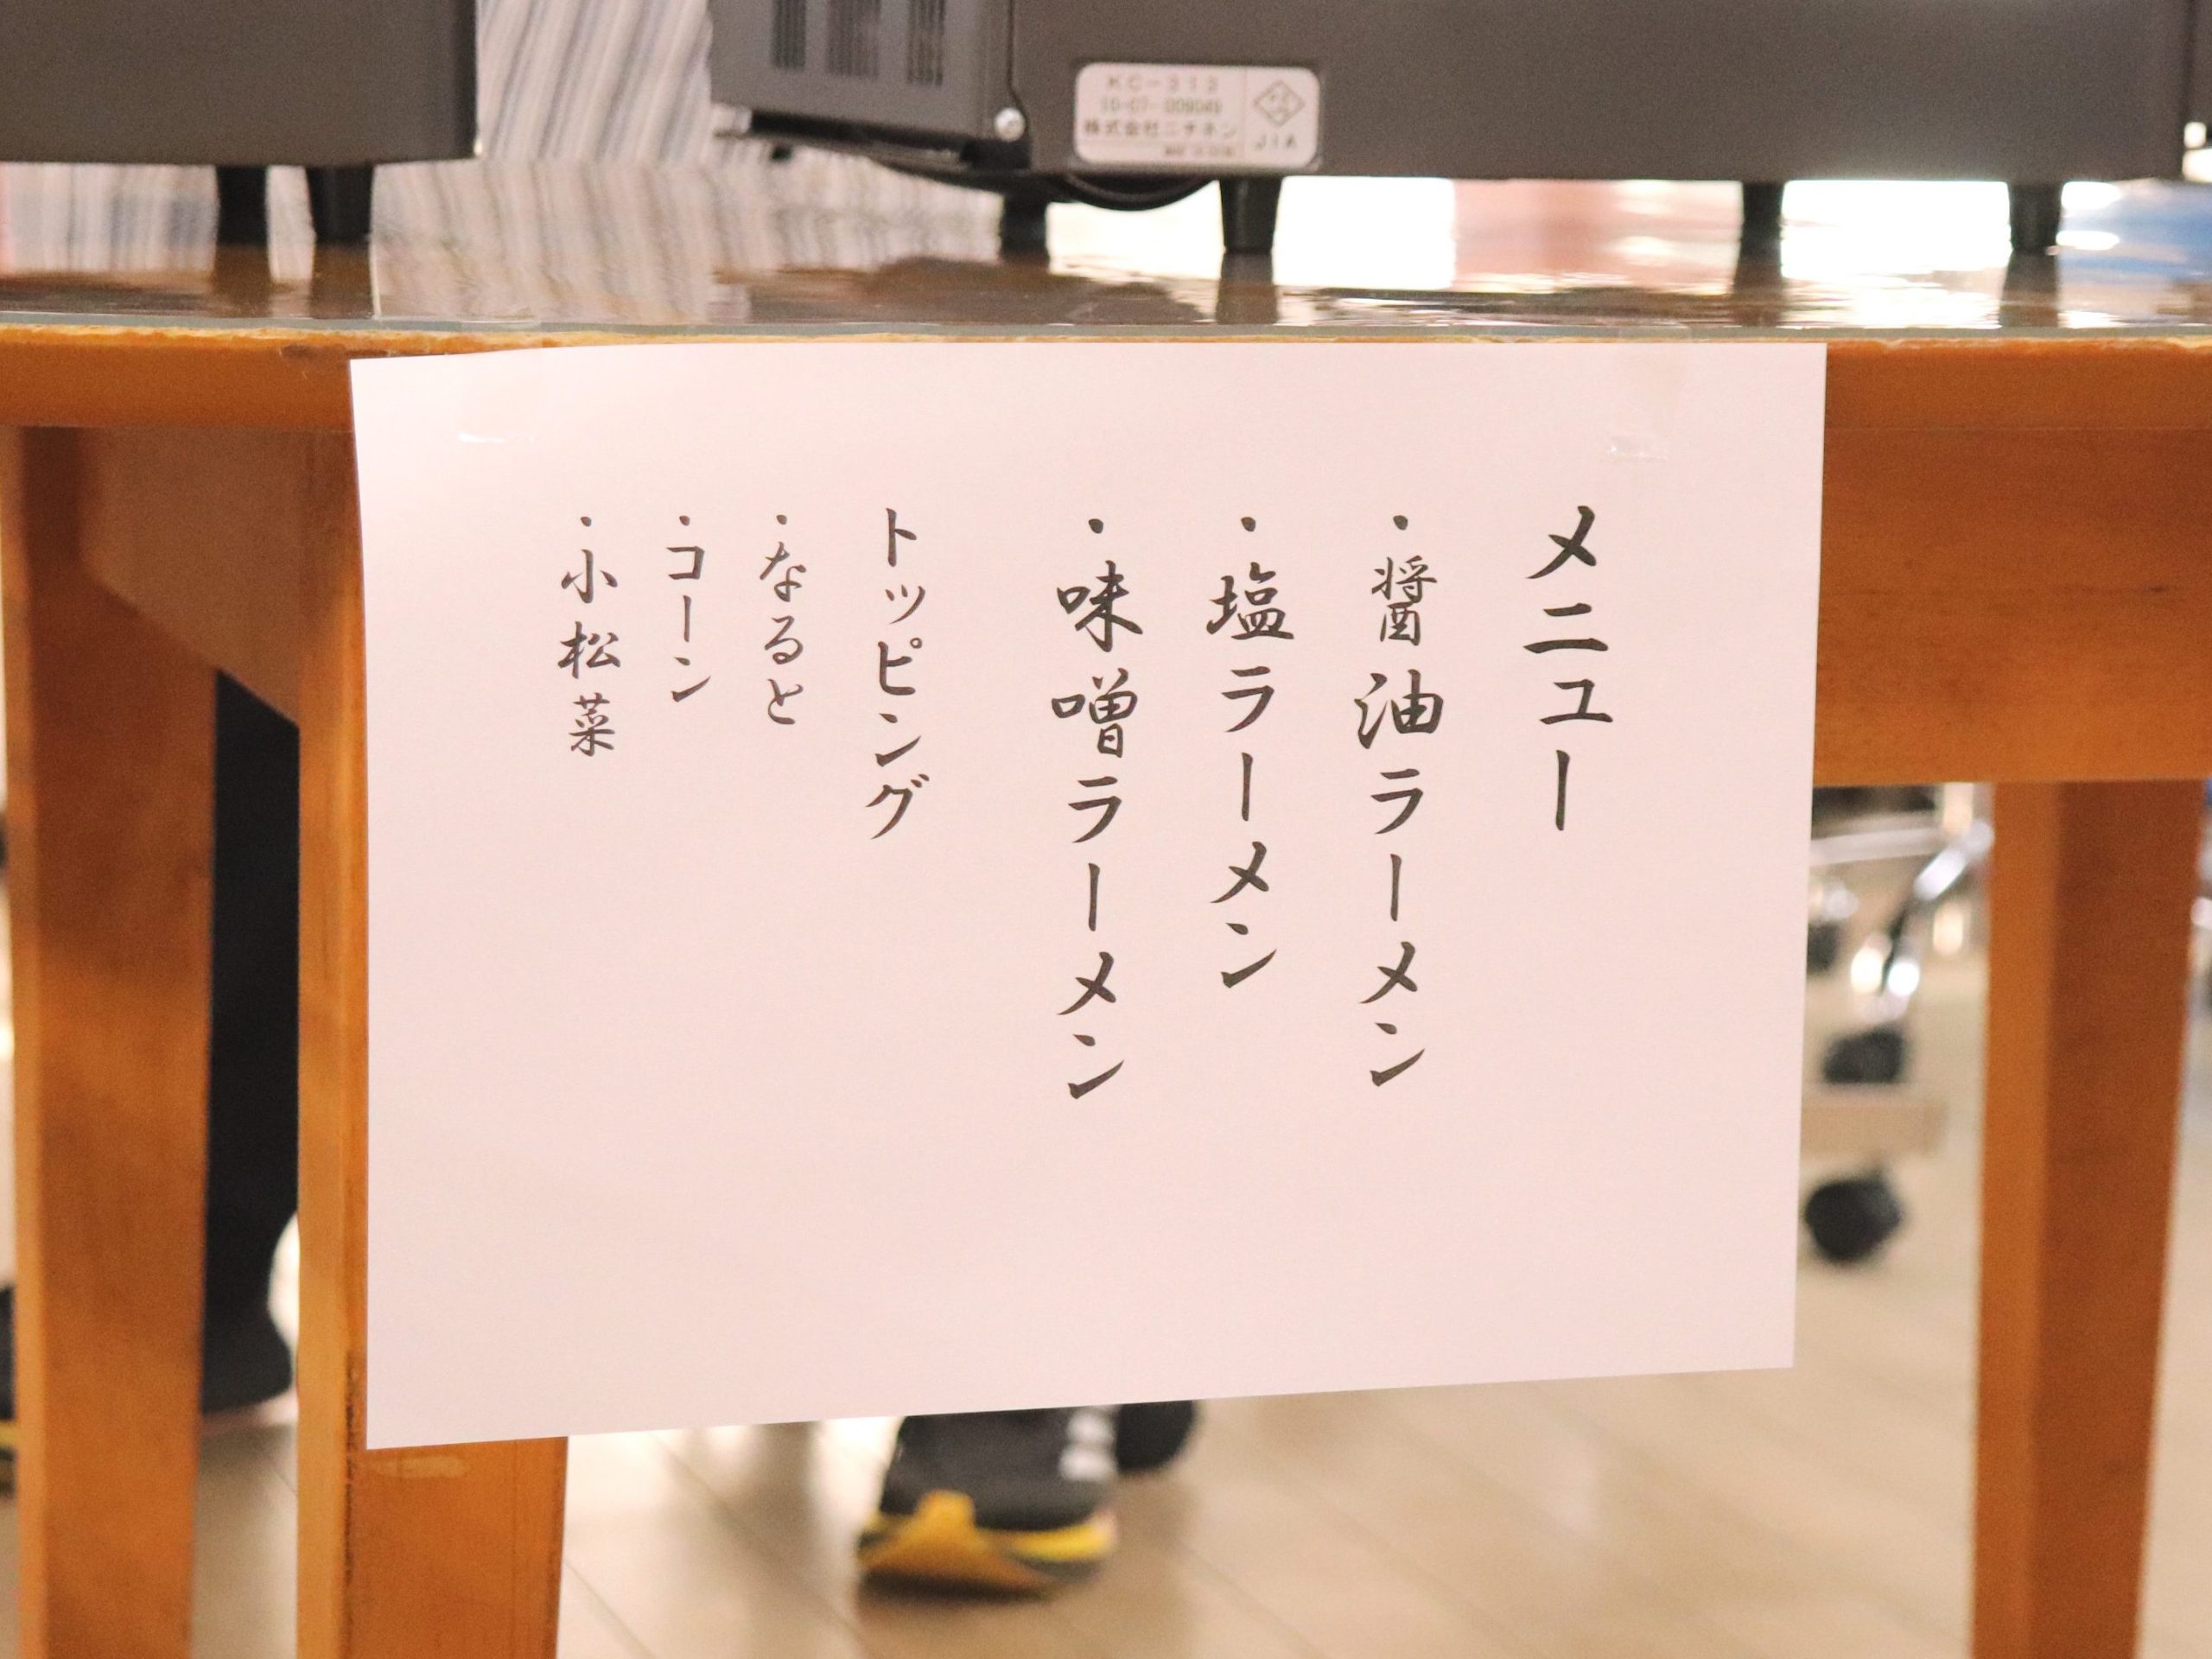 メニュー
・醤油ラーメン
・塩ラーメン
・味噌ラーメン
トッピング
・なると
・コーン
・小松菜
KC-313
10-07-009049
株式会社ニチネン
JIA